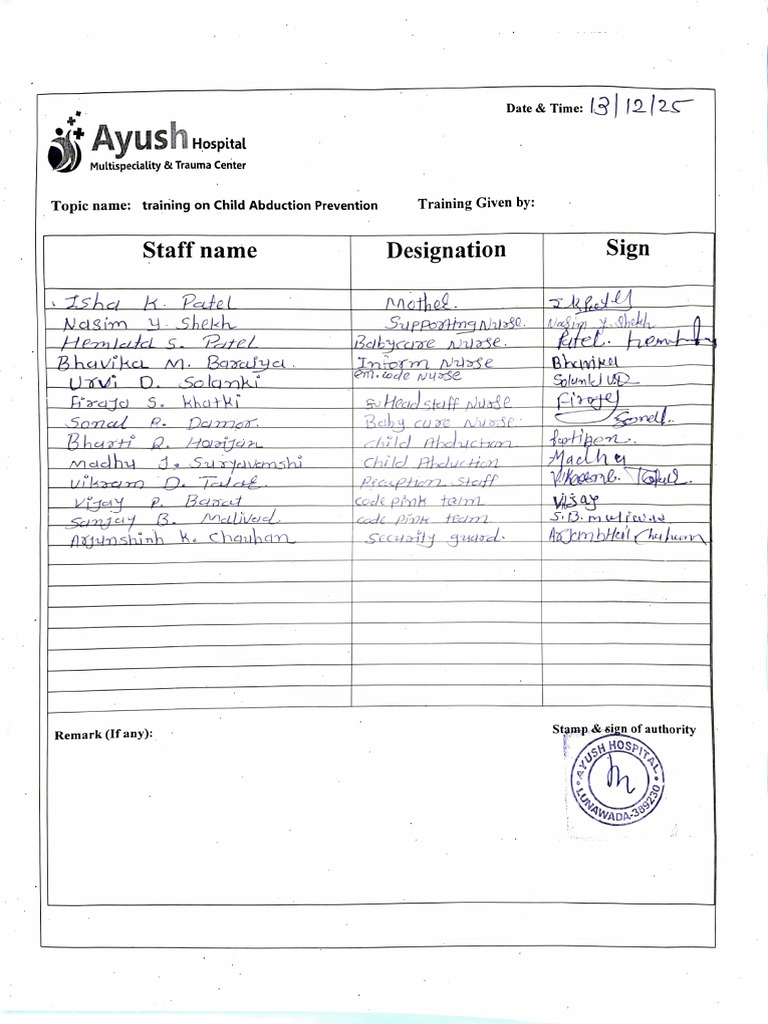 Date & Time: 13/12/25
Ayush Hospital
Multispeciality & Trauma Center
Topic name: training on Child Abduction Prevention Training Given by:
Staff name Designation Sign
Isha K. Patel Mothel. I K Patel
Nasim Y. Shekh Supporting Nurse. Nasim Y. Shekh
Hemlata S. Patel Babycare Nurse. Patel.
Bhavika M. Baraiya. Inform Nurse Bhavika
Urvi D. Solanki em. code Nurse Solanki UD
Firoja S. Khatki Head staff Nurse Firojel
Sonal R. Damor. Baby care Nurse. Sonal.
Bharti R. Harijan Child Abduction
Madhu J. Suryavanshi Child Abduction Madhu
Vikram D. Talat Reception Staff
Vijay P. Barat code pink team Vijay
Sanjay B. Malivad. code pink team S.B. maliwad
Arjunshinh K. Chauhan Security guard.
Remark (If any): Stamp & sign of authority
AYUSH HOSPITAL
LUNAWADA-389230